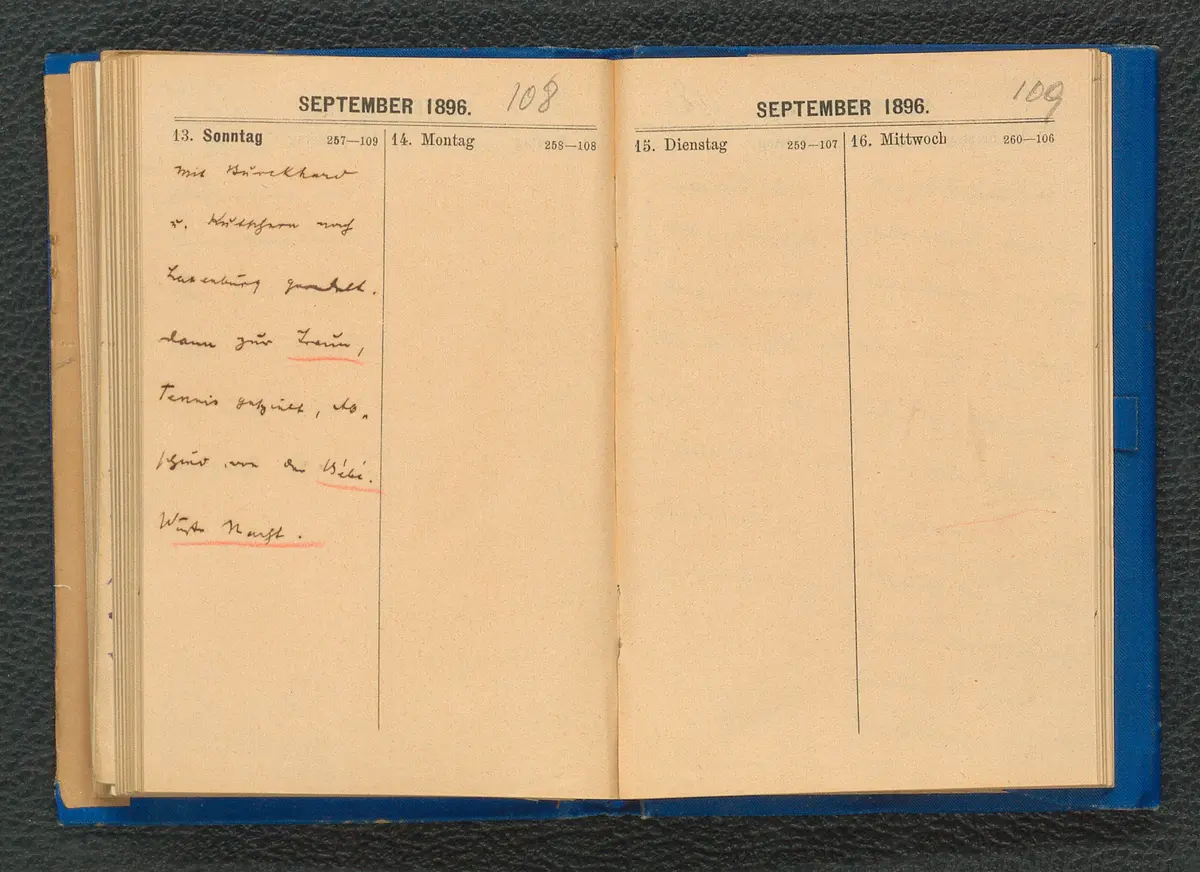 SEPTEMBER 1896. 108
13. Sonntag 257—109
mit Burckhard
u. Kutschera nach
Laxenburg geradelt.
dann zur Traun,
Tennis gespielt, Ab„
schied von der Bibi.
Wüste Nacht.
14. Montag 258—108
SEPTEMBER 1896. 109
15. Dienstag 259—107
16. Mittwoch 260—106